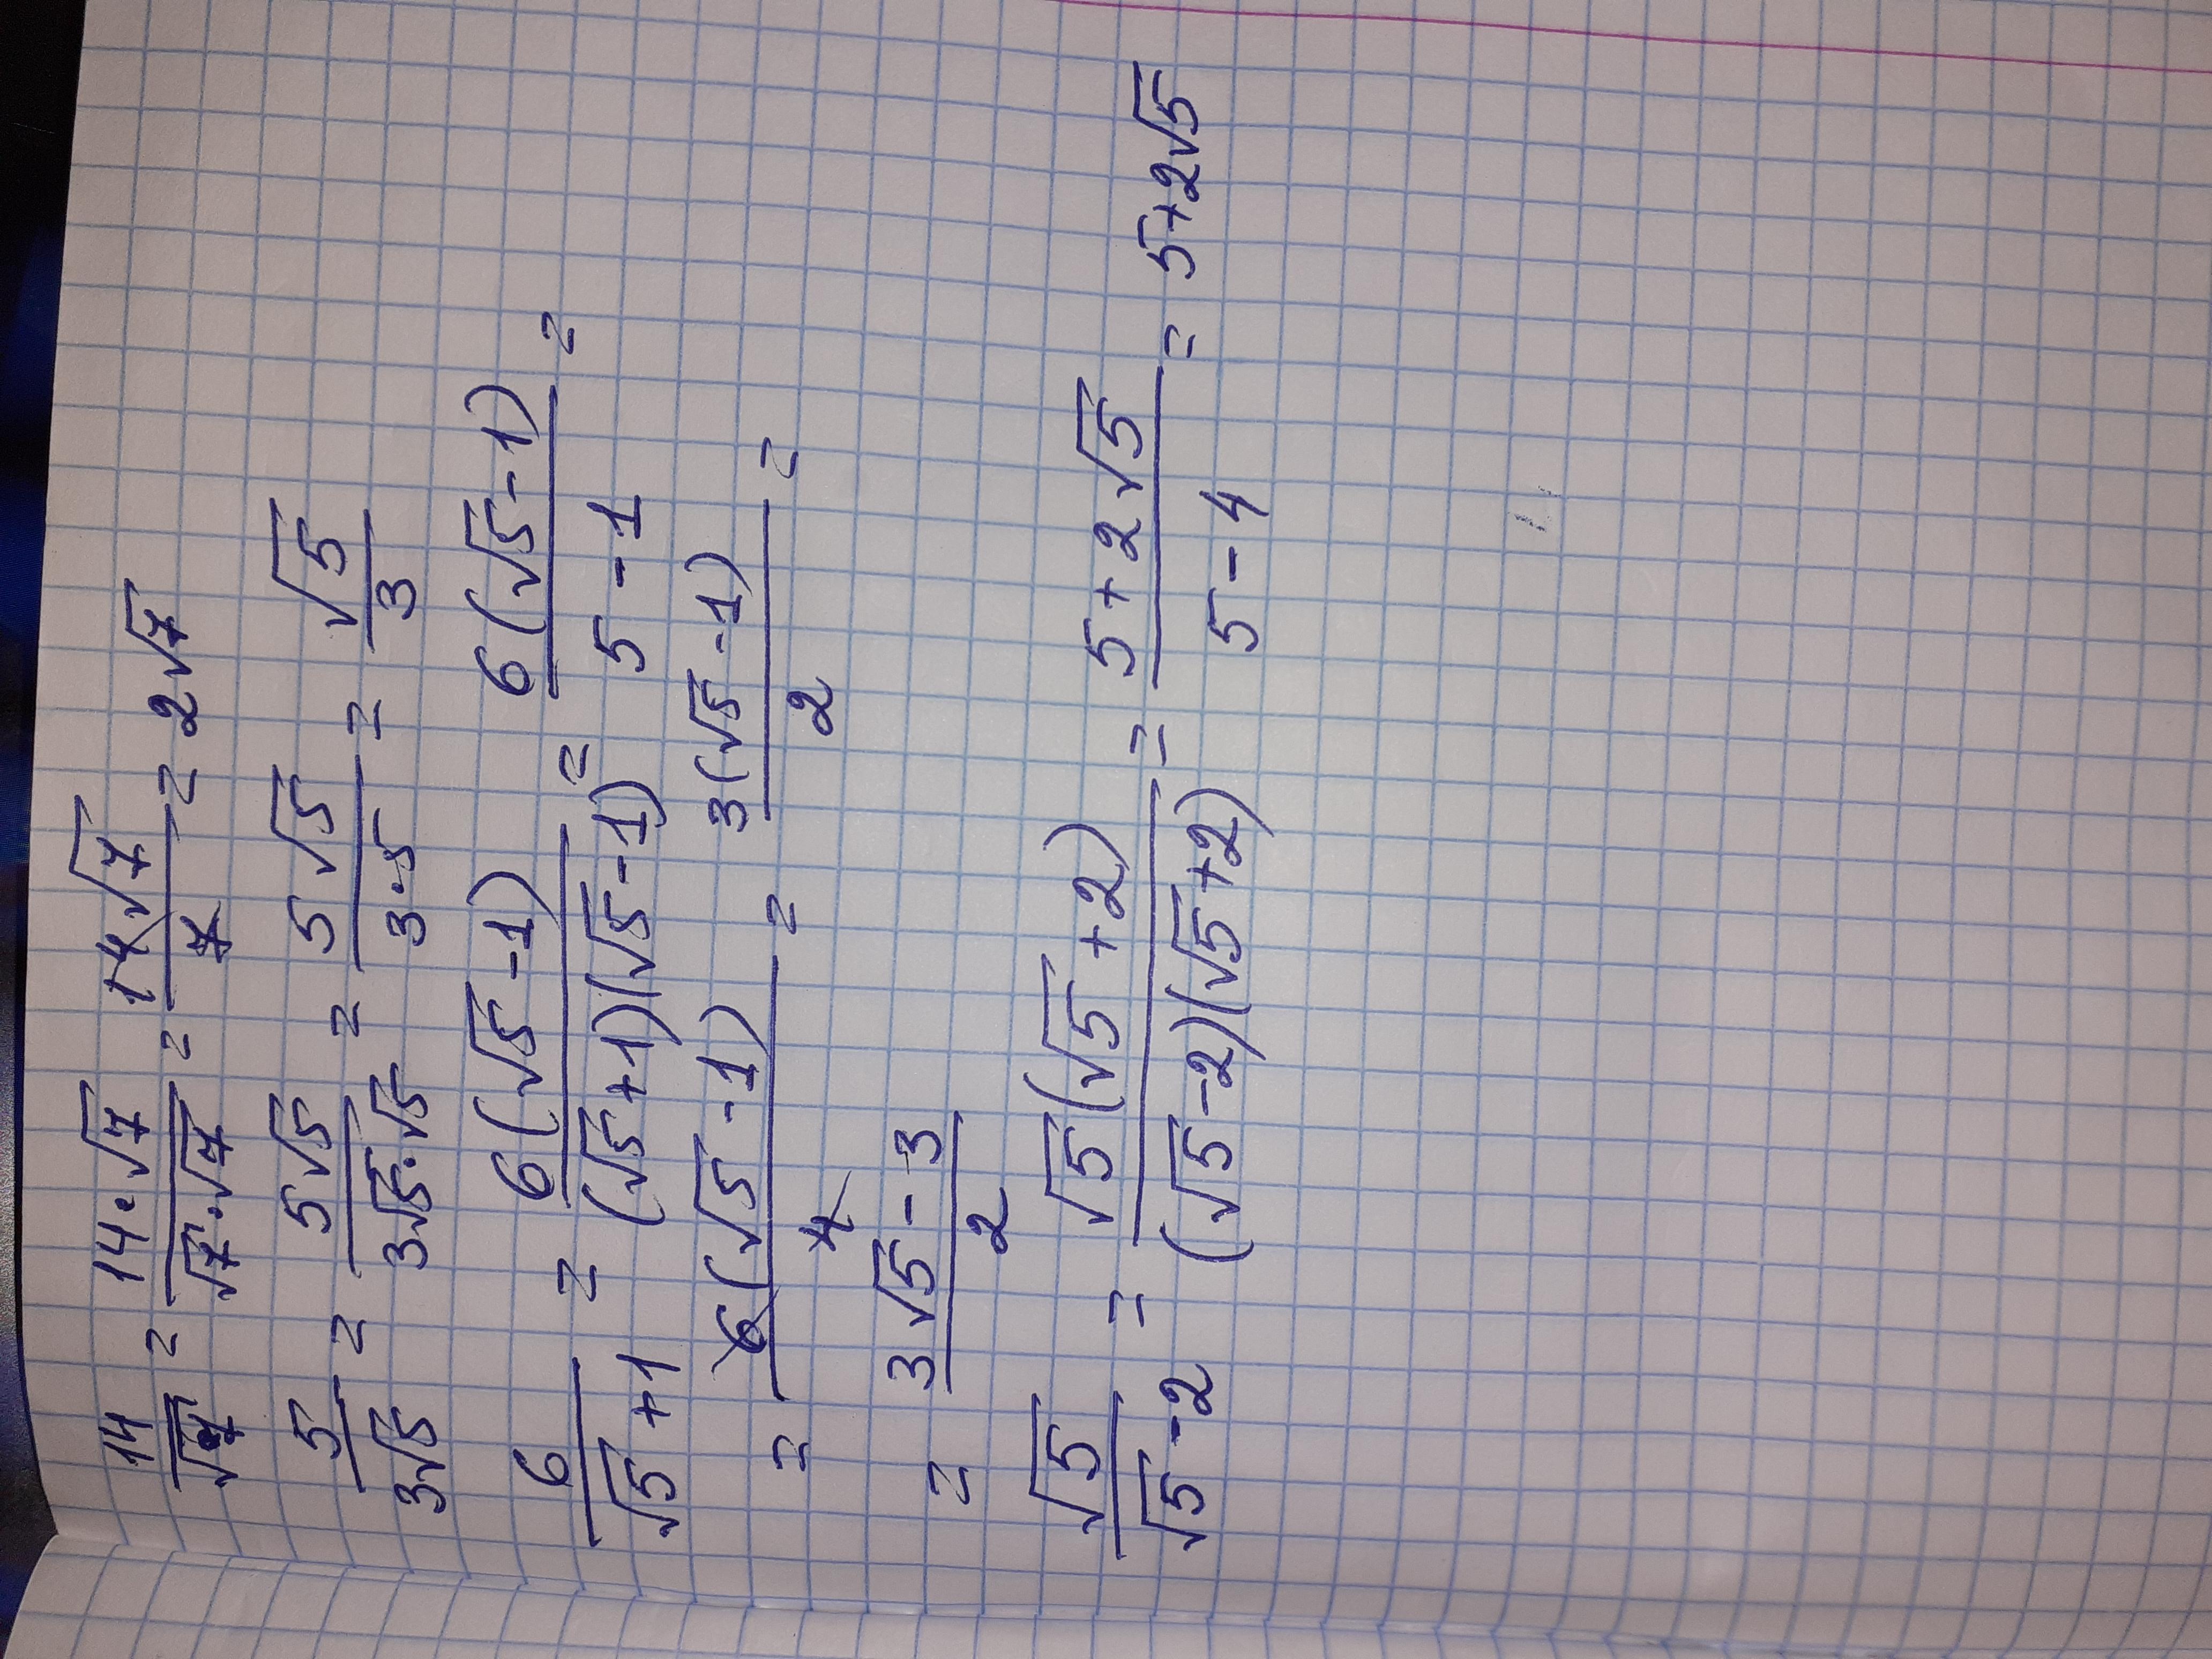 14/√7 = 14·√7/√7·√7 = 14√7/7 = 2√7
5/3√5 = 5√5/3√5·√5 = 5√5/3·5 = √5/3
6/√5+1 = 6(√5-1)/(√5+1)(√5-1) = 6(√5-1)/5-1 =
= 6(√5-1)/4 = 3(√5-1)/2 =
= 3√5-3/2
√5/√5-2 = √5(√5+2)/(√5-2)(√5+2) = 5+2√5/5-4 = 5+2√5